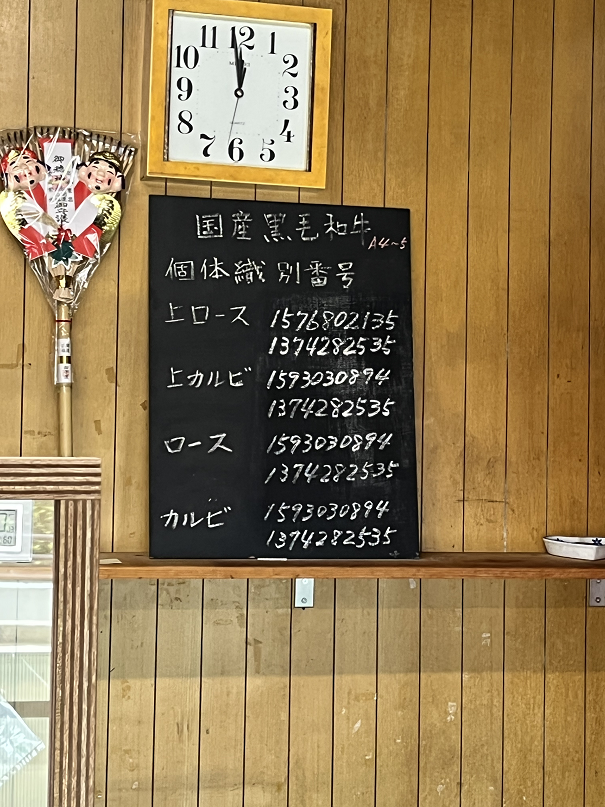 11 12 1
10 2
9 3
8 4
7 6 5
QUARTZ
国産黒毛和牛 A4~5
個体織別番号
上ロース 1576802135
1374282535
上カルビ 1593030894
1374282535
ロース 1593030894
1374282535
カルビ 1593030894
1374282535